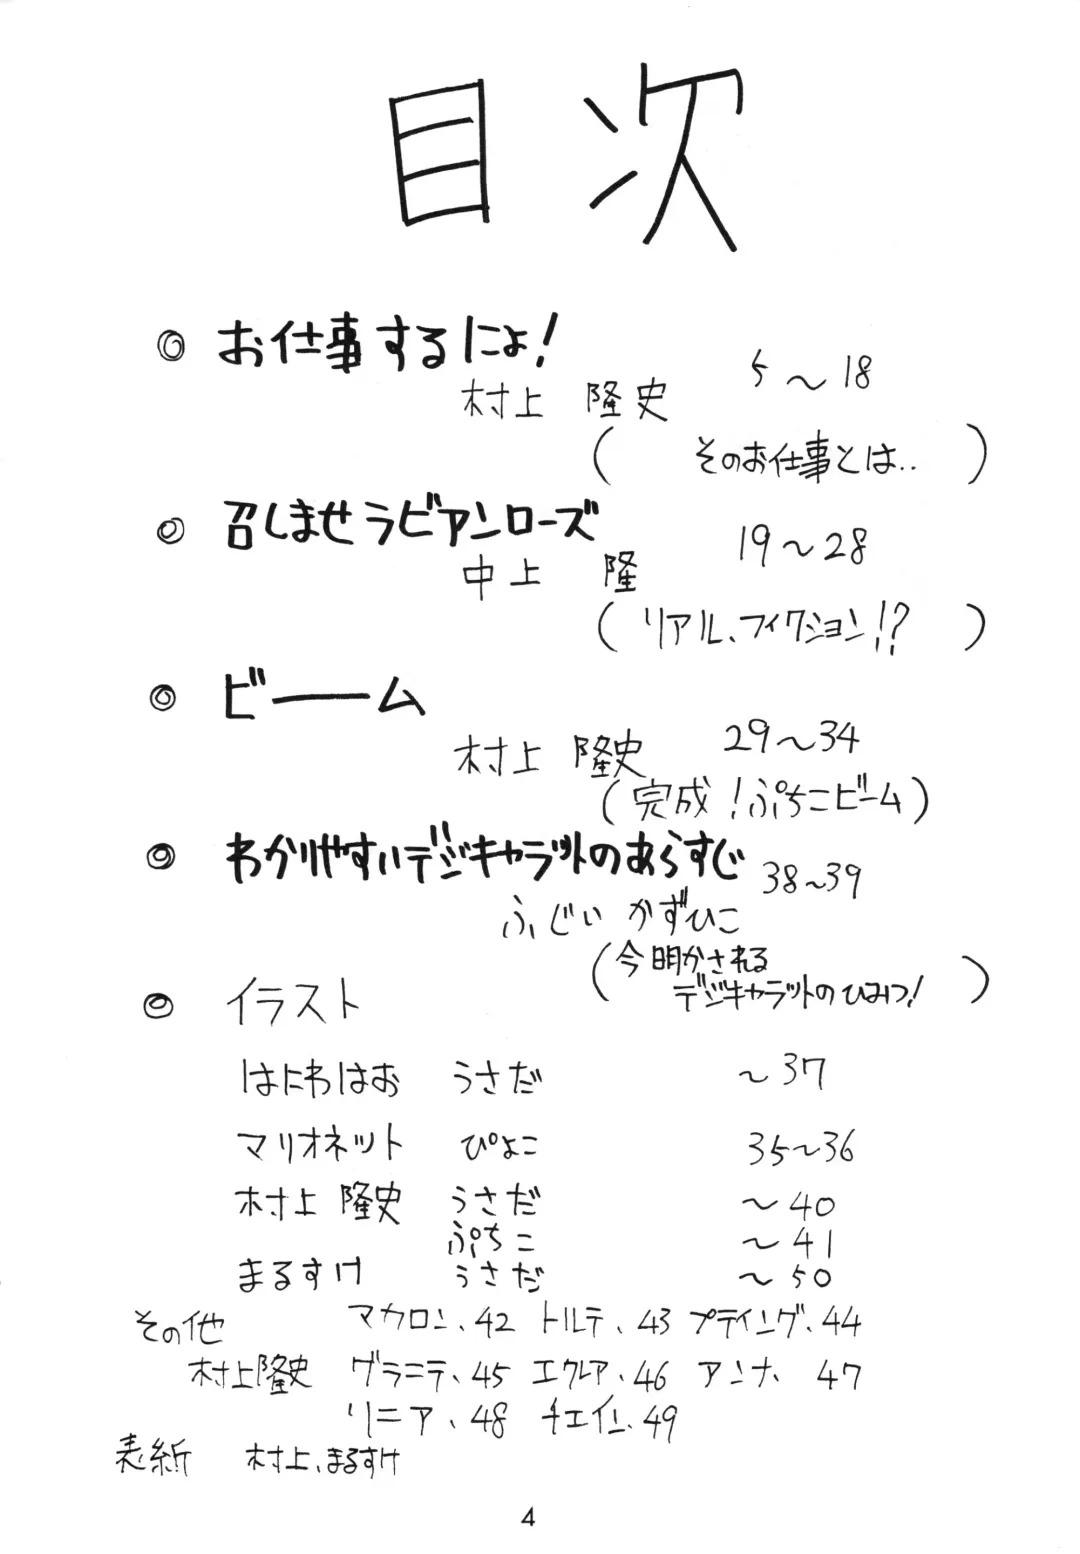 目次
◎ お仕事するにょ!
村上 隆史 5～18
( そのお仕事とは.. )
◎ 召しませラビアンローズ
中上 隆 19～28
( リアル、フィクション!? )
◎ ビーーム
村上 隆史 29～34
(完成!ぷちこビーム)
◎ わかりやすいデジキャラットのあらすじ 38～39
ふじい かずひこ
(今明かされる
デジキャラットのひみつ! )
◎ イラスト
はにわはお うさだ ～37
マリオネット ぴよこ 35～36
村上 隆史 うさだ ～40
ぷちこ ～41
まるすけ うさだ ～50
その他 マカロン、42 トルテ、43 プティング、44
村上隆史 グラニテ、45 エクレア、46 アンナ、47
リニア、48 チェイン、49
表紙 村上、まるすけ
4